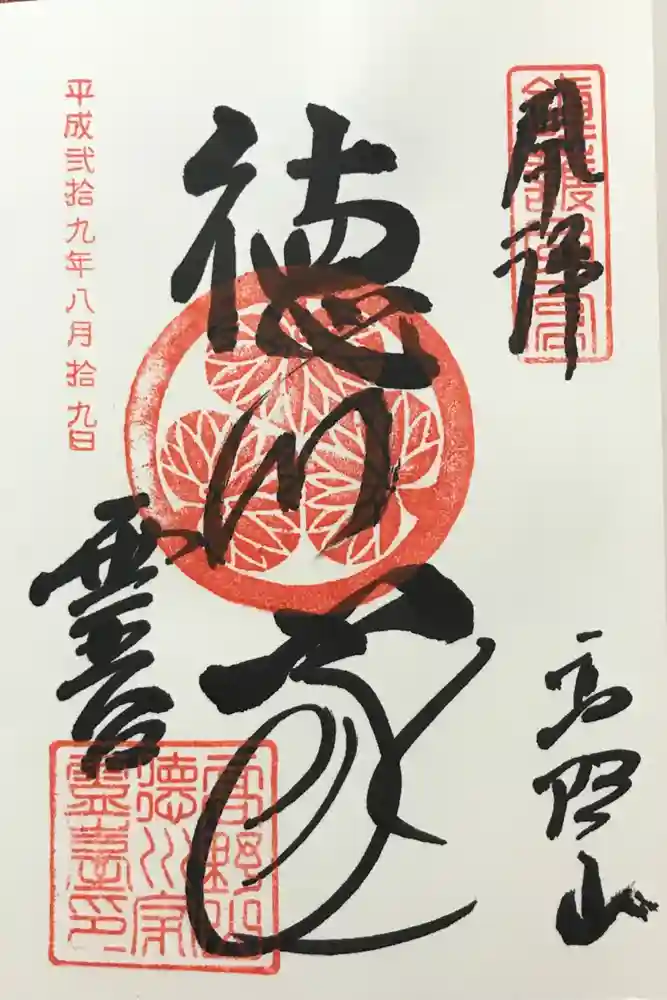 奉拝
高野山
徳川家
霊台
平成弐拾九年八月拾九日
高野山
徳川家
霊臺印